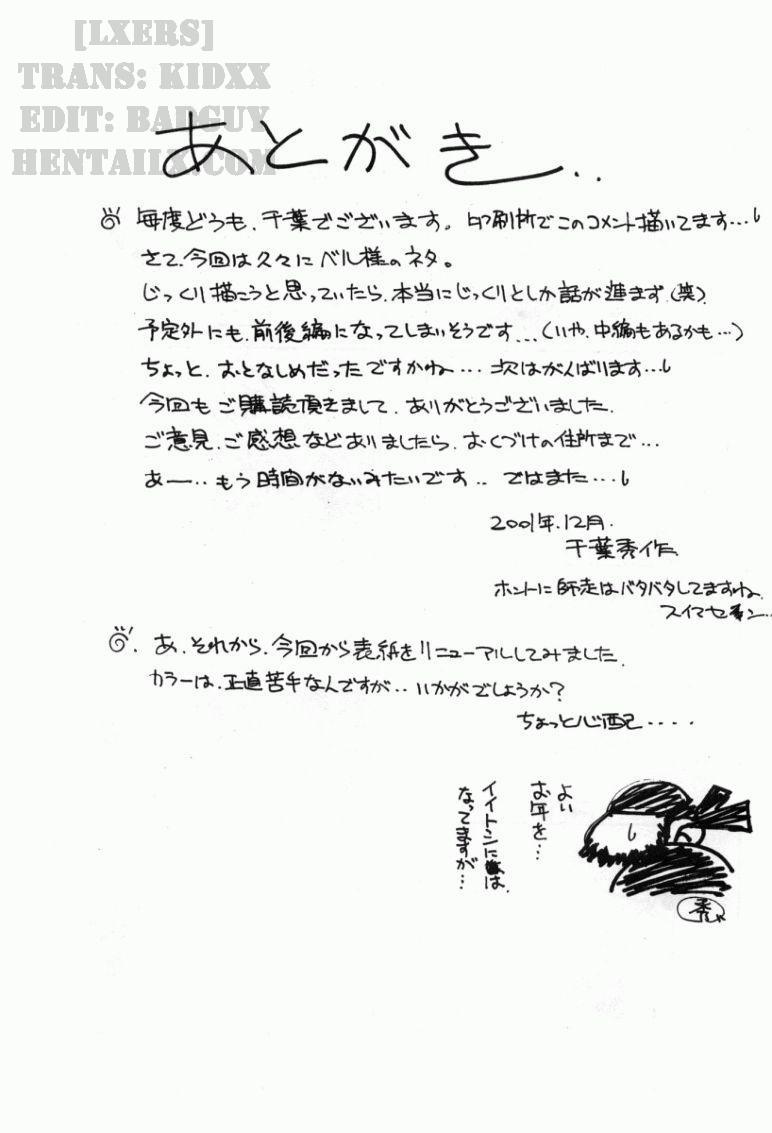 [LXERS]
TRANS: KIDXX
EDIT: BADGUY
HENTAILX.COM
あとがき..
毎度どうも、千葉でございます。印刷所でこのコメント描いてます...
さて、今回は久々にベル様のネタ。
じっくり描こうと思っていたら、本当にじっくりとしか話が進まず(笑).
予定外にも、前後編になってしまいそうです...(いや、中編もあるかも...)
ちょっと、おとなしめだったですかね...次はがんばります...
今回もご購読頂きまして、ありがとうございました.
ご意見、ご感想などありましたら、おくづけの住所まで...
あー..もう時間がないみたいです..ではまた...
2001年.12月.
千葉秀作
ホントに師走はバタバタしてますね.
スイマセン...
あ、それから、今回から表紙をリニューアルしてみました.
カラーは、正直苦手なんですが..いかがでしょうか?
ちょっと心配....
よい
お年を...
イイトシには、
なってますが...
秀